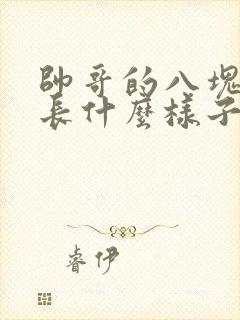 帥哥的八塊
長什麼樣子
睿伊